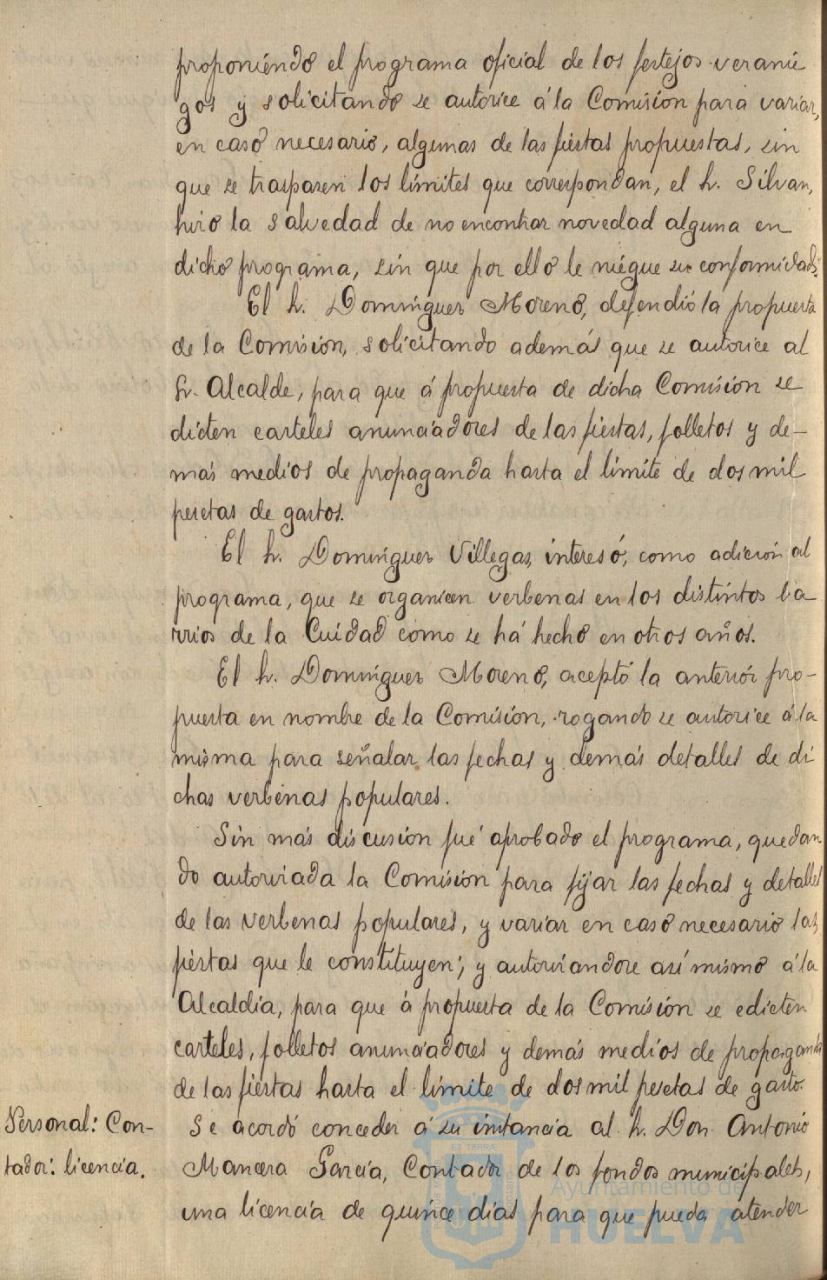 proponiendo el programa oficial de los festejos veranie
gos y solicitando se autorice á la Comisión para variar,
en caso necesario, algunas de las fiestas propuestas, sin
que se traspasen los límites que correspondan, el Sr. Silvan,
hizo la salvedad de no encontrar novedad alguna en
dicho programa, sin que por ello le niegue su conformidad.
El Sr. Domínguez Moreno, defendió la propuesta
de la Comisión, solicitando además que se autorice al
Sr. Alcalde, para que á propuesta de dicha Comisión se
dicten carteles anunciadores de las fiestas, folletos y de-
más medios de propaganda hasta el límite de dos mil
pesetas de gastos.
El Sr. Domínguez Villegas, interesó, como adición al
programa, que se organicen verbenas en los distintos ba-
rrios de la Cuidad como se há hecho en otros años.
El Sr. Domínguez Moreno, aceptó la anterior pro-
puesta en nombre de la Comisión, rogando se autorice á la
misma para señalar las fechas y demás detalles de di
chas verbenas populares.
Sin más discusión fué aprobado el programa, quedan
do autorizada la Comisión para fijar las fechas y detalles
de las verbenas populares, y variar en caso necesario las
fiestas que le constituyen; y autorizandose así mismo á la
Alcaldía, para que á propuesta de la Comisión se edicten
carteles, folletos anunciadores y demás medios de propaganda
de las fiestas hasta el límite de dos mil pesetas de gasto.
Personal: Con-
tador: licencia.
Se acordó conceder á su instancia al Sr. Don Antonio
Mancera García, Contador de los fondos municipales,
una licencia de quince días para que pueda atender
Ayuntamiento de
HUELVA